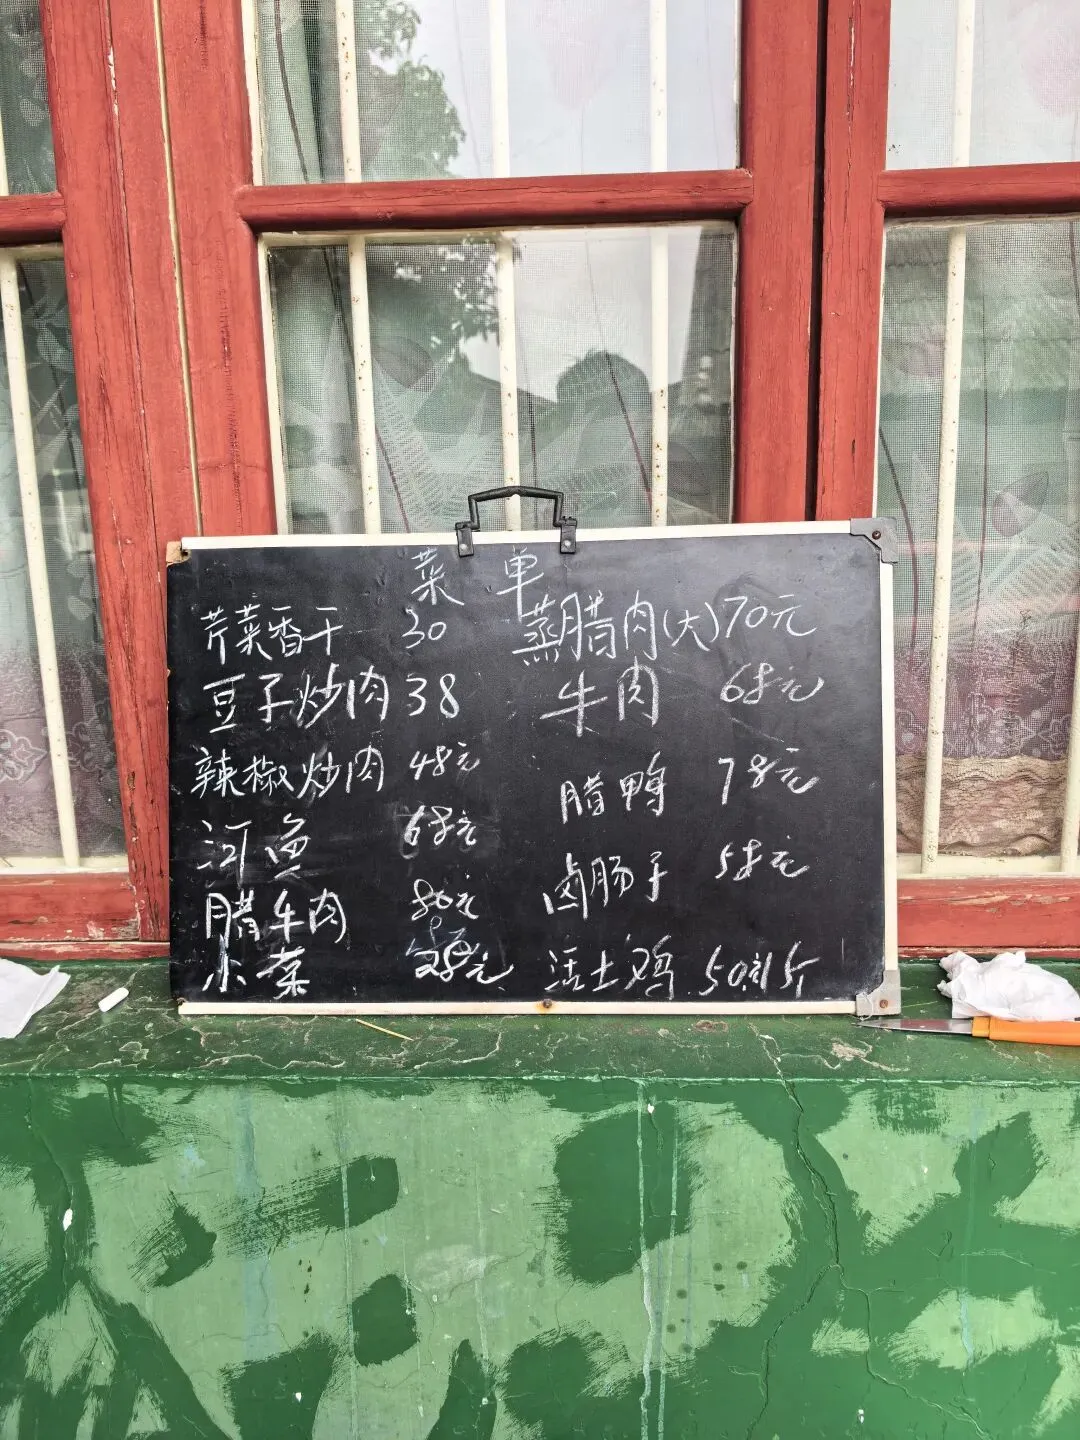 菜单
芹菜香干 30
豆子炒肉 38
辣椒炒肉 48元
河鱼 68元
腊牛肉 80元
小菜
蒸腊肉(大) 70元
牛肉 68元
腊鸭 78元
卤肠子 58元
活土鸡 50元1斤